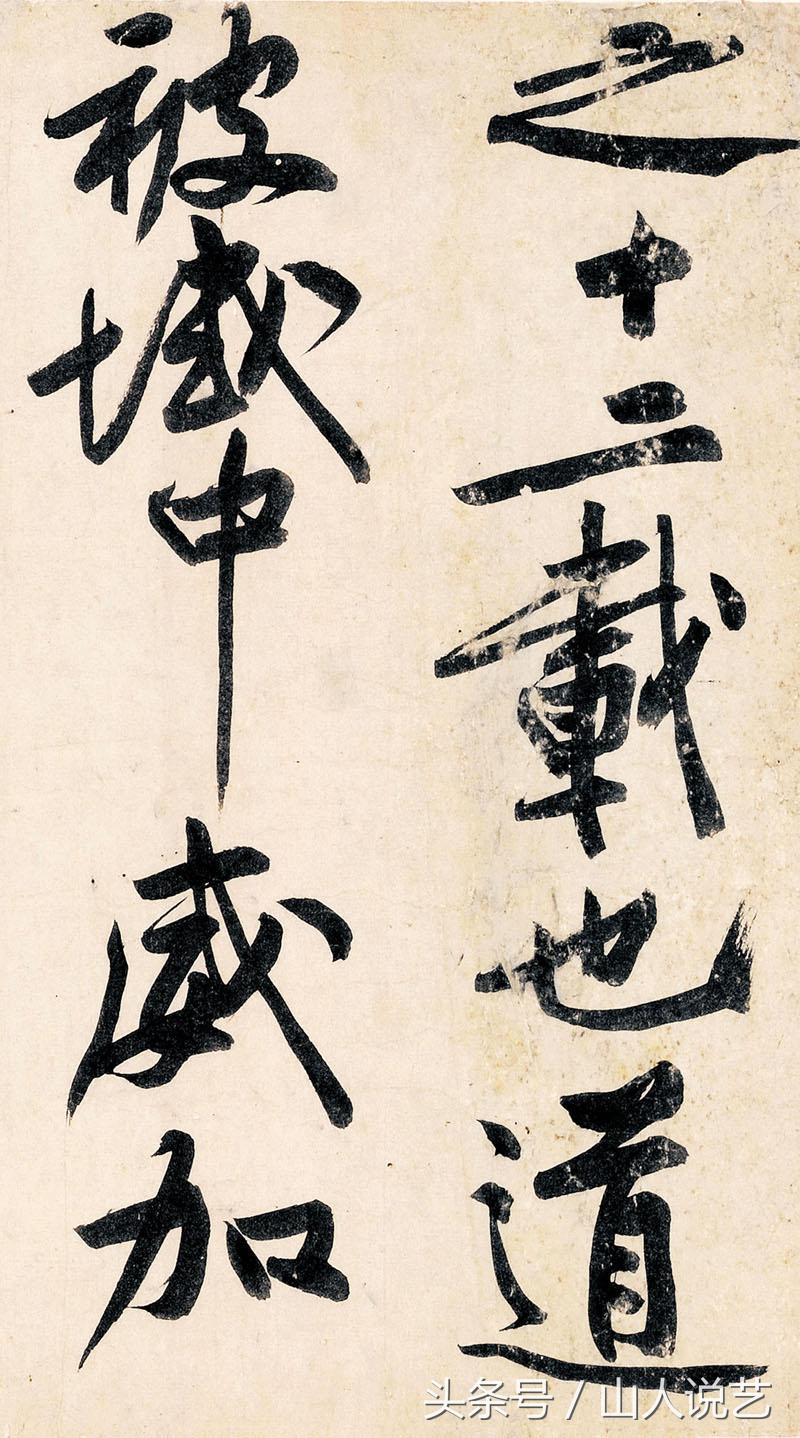 之十二載也道
被域中威加
头条号 / 山人说艺